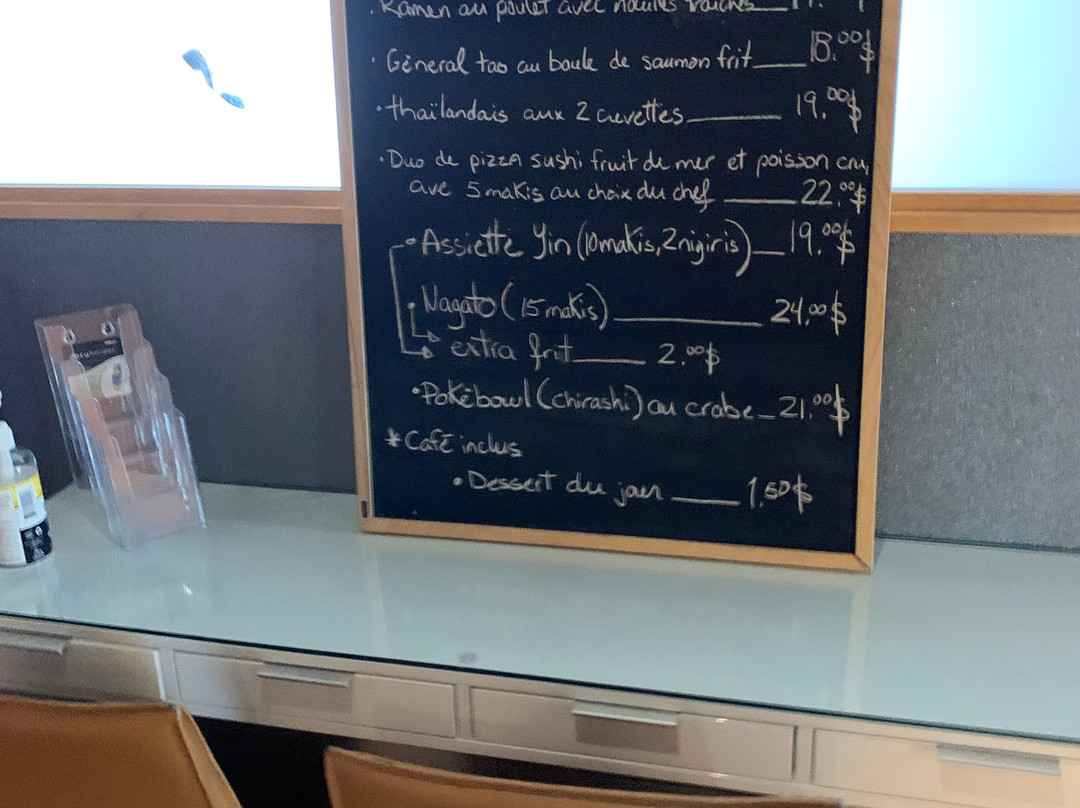 . Ramen au poulet avec nouilles fraiches
• Géneral tao au boule de saumon frit____18.00$
• thaïlandais aux 2 crevettes______19.00$
• Duo de pizza sushi fruit de mer et poisson cru,
ave 5 makis au choix du chef_____22.00$
• Assiette Yin (10makis, 2nigiris)__19.00$
• Nagato (15 makis)________24.00$
→ extra frit____2.00$
• Pokébowl (chirashi) au crabe_21.00$
* Café inclus
• Dessert du jour____1,50$